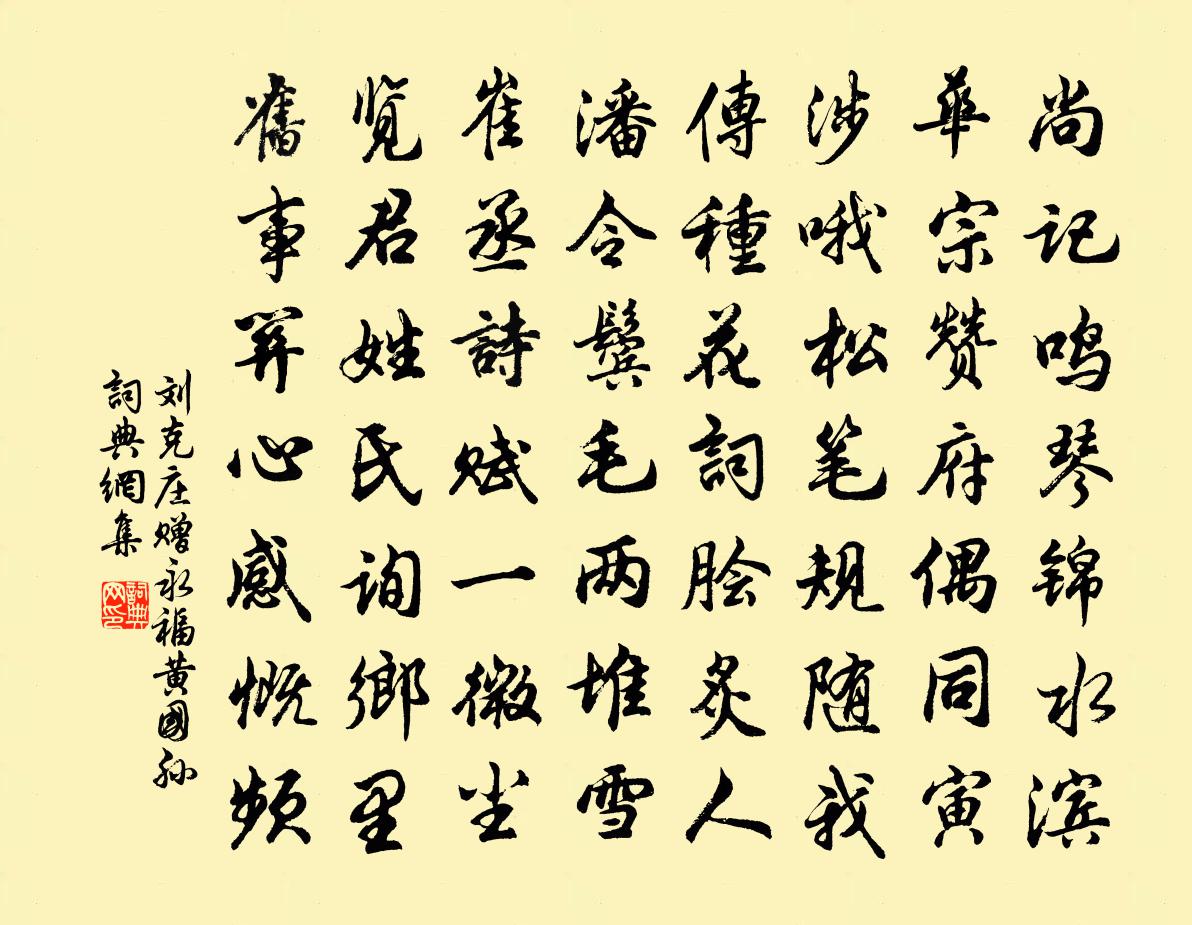 尚记鸣琴锦水滨
華宗赞府偶同寅
涉哦松笔规随我
傳種花詞脍炙人
潘令鬓毛两堆雪
崔丞詩赋一微尘
览君姓氏询鄉里
舊事関心感慨频
刘克庄赠永福黄國孙
詞典網集
詞典网印